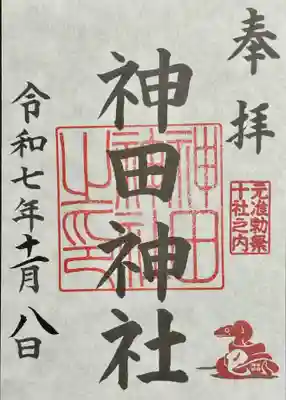 奉拝
元准勅祭
十社之内
神田神社
神田
神社
之印
令和七年十一月八日